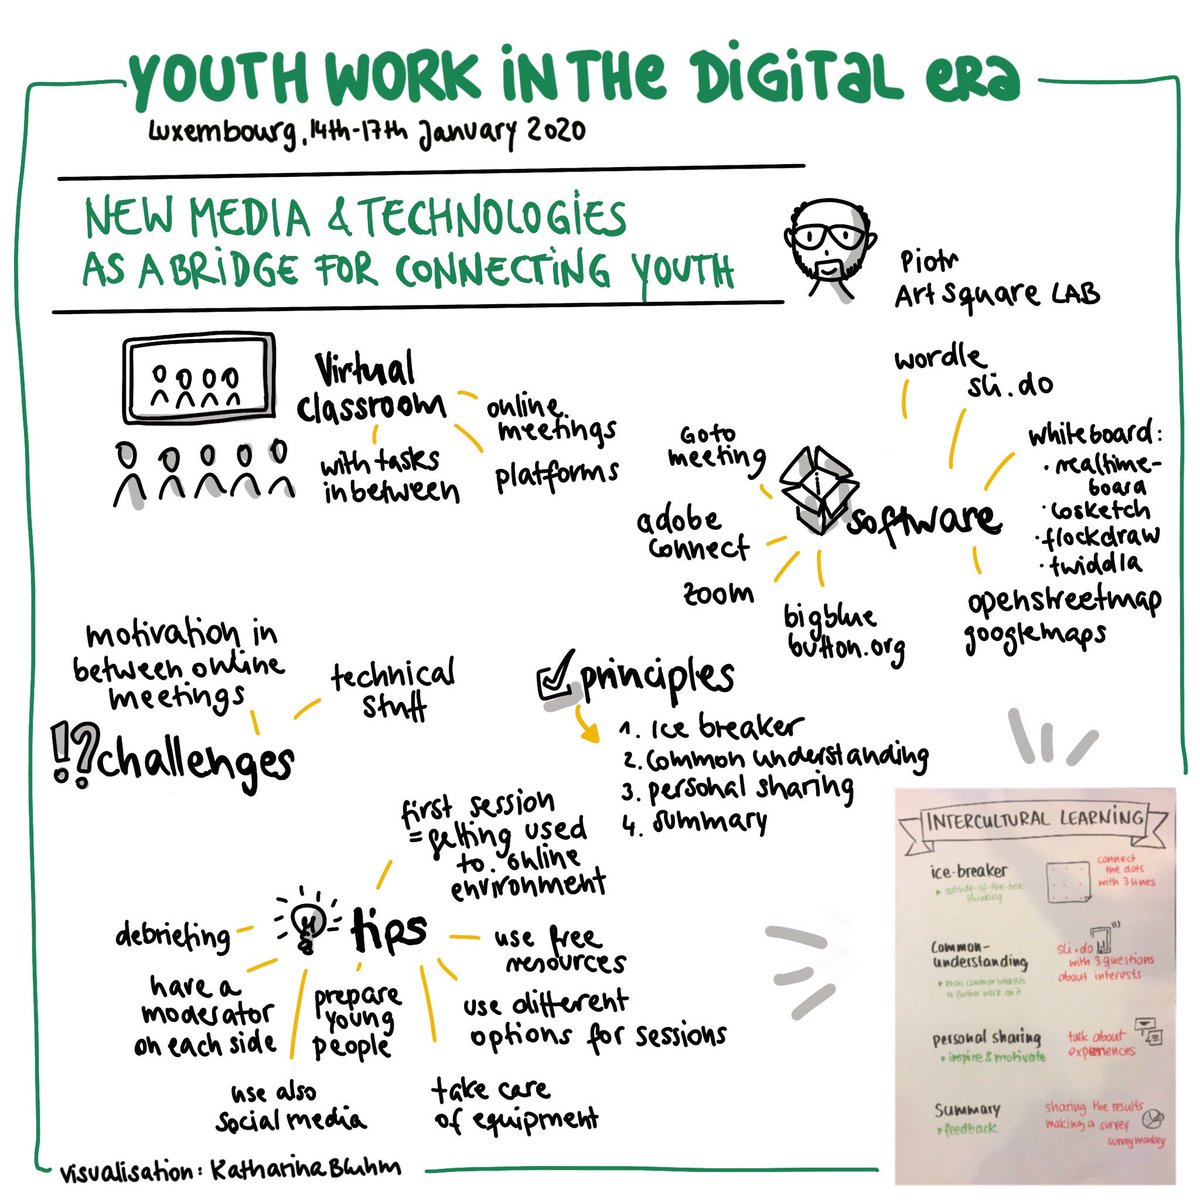 YOUTH WORK IN THE DIGITAL ERA
Luxembourg, 14th-17th January 2020
NEW MEDIA & TECHNOLOGIES
AS A BRIDGE FOR CONNECTING YOUTH
Piotr
Art Square LAB
Virtual
classroom
online
meetings
platforms
with tasks
in between
wordle
sli.do
whiteboard:
· realtime-
board
· cosketch
· flockdraw
· twiddla
GOTO
meeting
software
adobe
connect
zoom
bigblue
button.org
openstreetmap
googlemaps
motivation in
between online
meetings
technical
stuff
!?challenges
principles
1. Ice breaker
2. common understanding
3. personal sharing
4. summary
first session
= getting used
to online
environment
tips
debriefing
have a
moderator
on each side
use also
social media
prepare
young
people
take care
of equipment
use different
options for sessions
use free
resources
INTERCULTURAL LEARNING
ice-breaker
outside-of-the-box-
thinking
connect
the dots
with 3 lines
Common-
understanding
know common interests
to further work on it
sli.do
with 3 questions
about interests
personal sharing
inspire & motivate
talk about
experiences
Summary
feedback
sharing the results
making a survey
surveymonkey
visualisation: Katharina Bluhm